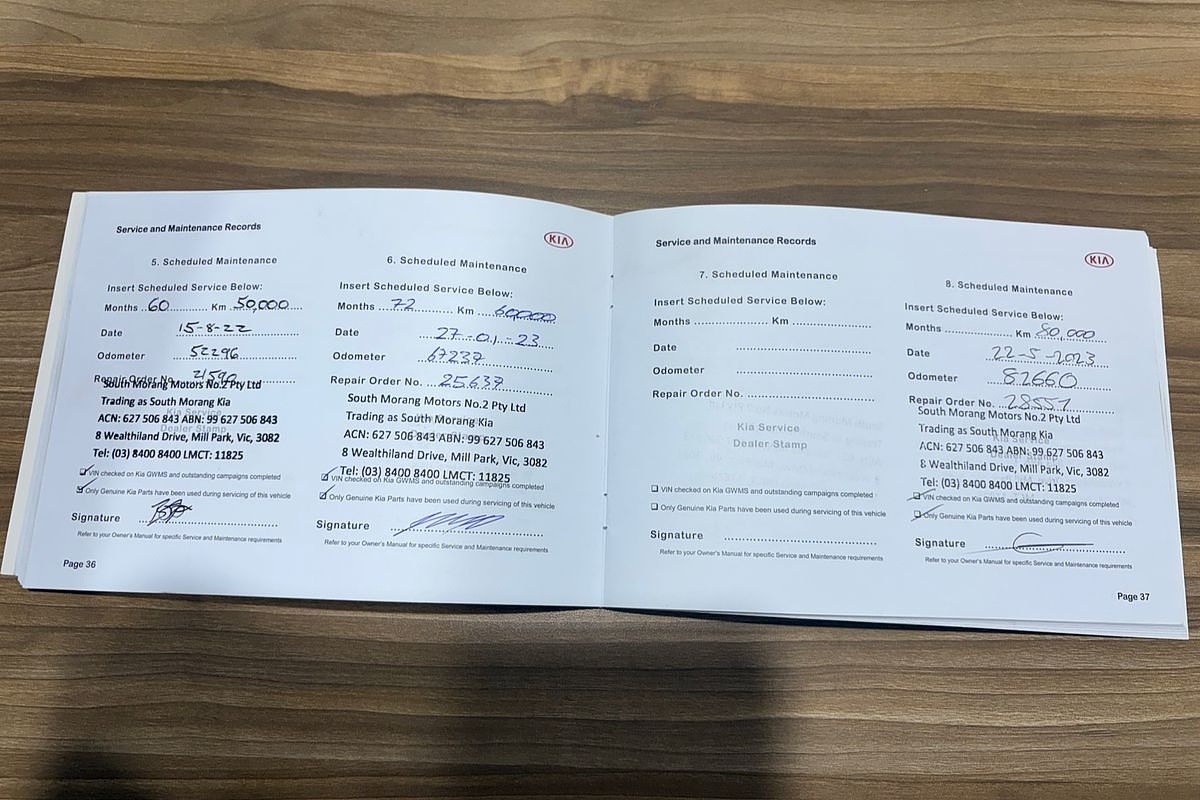 Service and Maintenance Records
KIA
5. Scheduled Maintenance
Insert Scheduled Service Below:
Months 60 Km 50,000
Date 15-8-22
Odometer 52296
Repair Order No. 21590
South Morang Motors No.2 Pty Ltd
Trading as South Morang Kia
Kia Service
ACN: 627 506 843 ABN: 99 627 506 843
Dealer Stamp
8 Wealthiland Drive, Mill Park, Vic, 3082
Tel: (03) 8400 8400 LMCT: 11825
VIN checked on Kia GWMS and outstanding campaigns completed
Only Genuine Kia Parts have been used during servicing of this vehicle
Signature
Refer to your Owner's Manual for specific Service and Maintenance requirements
Page 36
6. Scheduled Maintenance
Insert Scheduled Service Below:
Months 72 Km 60,000
Date 27-01-23
Odometer 67237
Repair Order No. 25637
South Morang Motors No.2 Pty Ltd
Trading as South Morang Kia
ACN: 627 506 843 ABN: 99 627 506 843
8 Wealthiland Drive, Mill Park, Vic, 3082
Tel: (03) 8400 8400 LMCT: 11825
VIN checked on Kia GWMS and outstanding campaigns completed
Only Genuine Kia Parts have been used during servicing of this vehicle
Signature
Refer to your Owner's Manual for specific Service and Maintenance requirements
Service and Maintenance Records
KIA
7. Scheduled Maintenance
Insert Scheduled Service Below:
Months Km
Date
Odometer
Repair Order No.
Kia Service
Dealer Stamp
VIN checked on Kia GWMS and outstanding campaigns completed
Only Genuine Kia Parts have been used during servicing of this vehicle
Signature
Refer to your Owner's Manual for specific Service and Maintenance requirements
8. Scheduled Maintenance
Insert Scheduled Service Below:
Months Km 80,000
Date 22-5-2023
Odometer 82660
Repair Order No. 28551
South Morang Motors No.2 Pty Ltd
Trading as South Morang Kia
Kia Service
ACN: 627 506 843 ABN: 99 627 506 843
Dealer Stamp
8 Wealthiland Drive, Mill Park, Vic, 3082
Tel: (03) 8400 8400 LMCT: 11825
VIN checked on Kia GWMS and outstanding campaigns completed
Only Genuine Kia Parts have been used during servicing of this vehicle
Signature
Refer to your Owner's Manual for specific Service and Maintenance requirements
Page 37